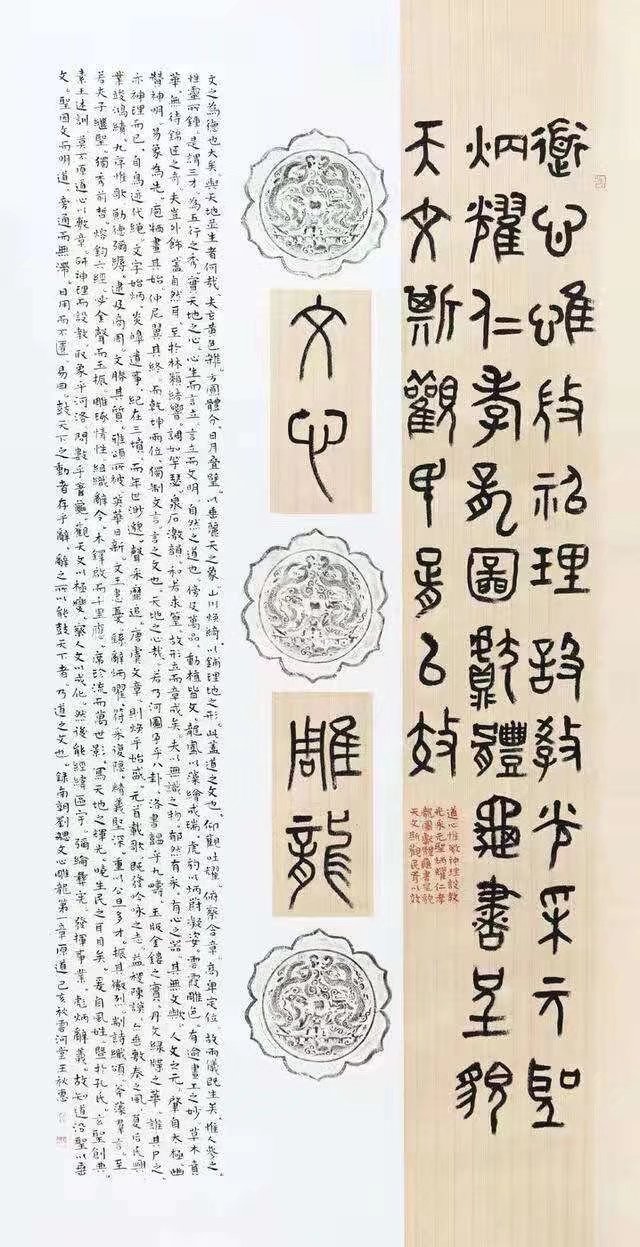 道心惟微神理設教光采元聖
炳耀仁孝龍圖獻體龜書呈貌
天文斯觀民胥以效
道心惟微神理設教
光采元聖炳耀仁孝
龍圖獻體龜書呈貌
天文斯觀民胥以效
文心
雕龍
文之為德也大矣與天地並生者何哉夫玄黃色雜方圓體分日月疊璧以垂麗天之象山川煥綺以鋪理地之形此蓋道之文也仰觀吐耀俯察含章高卑定位故兩儀既生矣惟人參之
性靈所鍾是謂三才為五行之秀實天地之心心生而言立言立而文明自然之道也傍及萬品動植皆文龍鳳以藻繪成瑞虎豹以炳蔚凝姿雲霞雕色有逾畫工之妙草木賁
華無待錦匠之奇夫豈外飾蓋自然耳至於林籟結響調如竽瑟泉石激韻和若球鍠故形立而章成矣夫以無識之物郁然有彩有心之器其無文歟人文之元肇自太極幽
贊神明易象為先庖犧畫其始仲尼翼其終而乾坤兩位獨制文言言之文也天地之心哉若乃河圖孕乎八卦洛書韞乎九疇玉版金鏤之實丹文綠牒之華誰其尸之
亦神理而已自鳥迹代繩文字始炳炎皞遺事紀在三墳而年世渺邈聲采靡追唐虞文章則煥乎始盛元首載歌既發吟詠之志益稷陳謨亦垂敷奏之風夏后氏興
業峻鴻績九序惟歌勳德彌縟逮及商周文勝其質雅頌所被英華日新文王憂患繇辭炳曜符采復隱精義堅深重以公旦多才振其徽烈制詩緝頌斧藻群言至
若夫子繼聖獨秀前哲鎔鈞六經必金聲而玉振雕琢情性組織辭令木鐸啟而千里應席珍流而萬世響寫天地之輝光曉生民之耳目矣爰自風姓暨於孔氏玄聖創典
素王述訓莫不原道心以敷章研神理而設教取象乎河洛問數乎蓍龜觀天文以極變察人文以成化然後能經緯區宇彌綸彝憲發揮事業彪炳辭義故知道沿聖以垂
文聖因文而明道旁通而無滯日用而不匱易曰鼓天下之動者存乎辭辭之所以能鼓天下者乃道之文也錄南朝劉勰文心雕龍第一章原道己亥秋雲河堂王秋惠